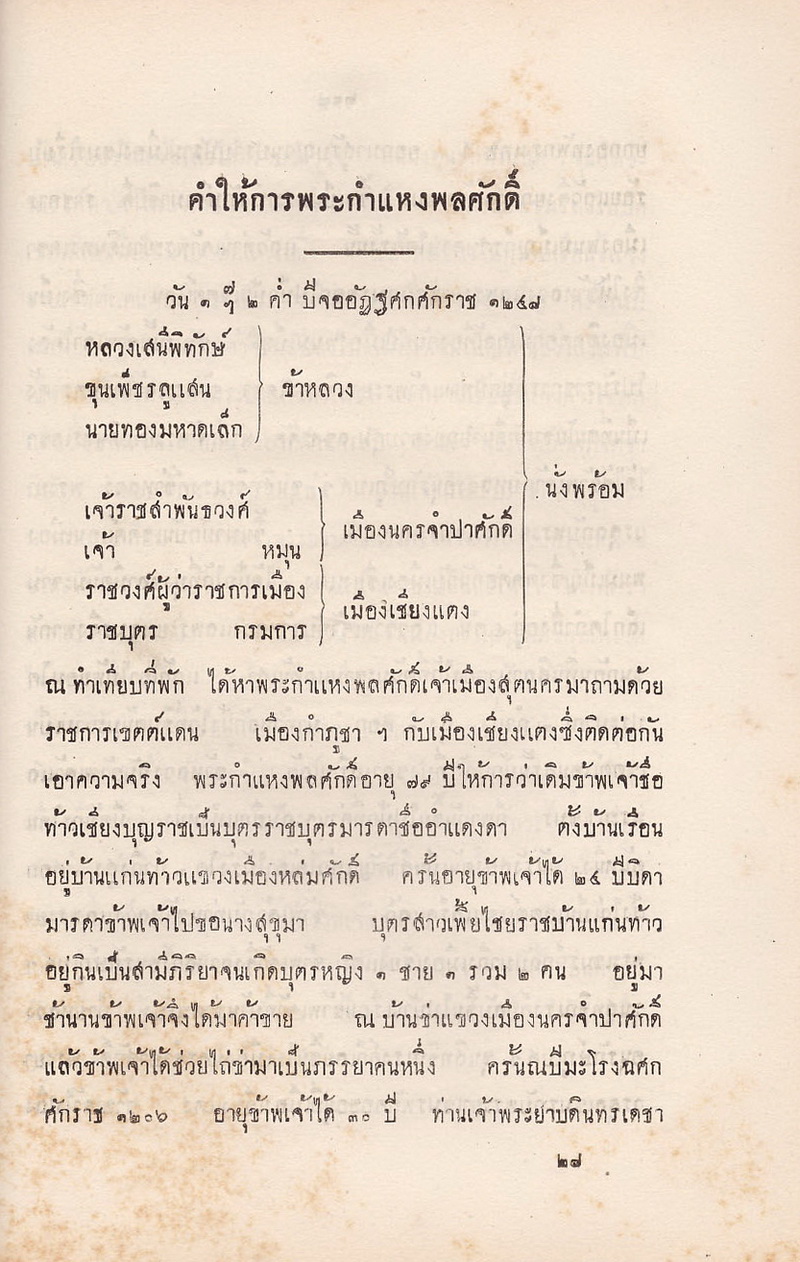 คำให้การพระกำแหงพลศักดิ์
วัน ๑ ๗ฯ ๒ ค่ำ ปีจออัฏฐศกศักราช ๑๒๔๘
หลวงเสนีพิทักษ์
ขุนเพ็ชรดูแสน
นายทองมหาดเล็ก
ข้าหลวง
เจ้าราชสำพันธวงศ์
เจ้า หมุน
เมืองนครจำปาศักดิ์
ราชวงศ์ผู้ว่าราชการเมือง
ราชบุตร กรมการ
เมืองเชียงแตง
นั่งพร้อม
ณ ทำเทียบที่พัก ได้หาพระกำแหงพลศักดิ์เจ้าเมืองสุตนครมาถามด้วย
ราชการเขตต์แดน เมืองกำภูชา ฯ กับเมืองเชียงแตงซึ่งติดต่อกัน
เอาความจริง พระกำแหงพลศักดิ์อายุ ๗๙ ปีให้การว่าเดิมข้าพเจ้าชื่อ
ท้าวเชียงบุญราชเป็นบุตรราชบุตรมารดาชื่ออำแดงดา ตั้งบ้านเรือน
อยู่บ้านแก่นท้าวแขวงเมืองหล่มศักดิ์ ครั้นอายุข้าพเจ้าได้ ๒๕ ปีบิดา
มารดาข้าพเจ้าไปขอนางสุขุมา บุตรสาวเพี้ยไชยราชบ้านแก่นท้าว
อยู่กินเป็นสามีภิริยาจนเกิดบุตรหญิง ๑ ชาย ๑ รวม ๒ คน อยู่มา
ช้านานข้าพเจ้าจึ่งได้มาค้าขาย ณ บ้านข่าแขวงเมืองนครจำปาศักดิ์
แล้วข้าพเจ้าได้ช่วยไถ่ข่ามาเป็นภรรยาคนหนึ่ง ครั้นณปีมะโรงฉศก
ศักราช ๑๒๐๖ อายุข้าพเจ้าได้ ๓๐ ปี ท่านเจ้าพระยาบดินทรเดชา
๒๘